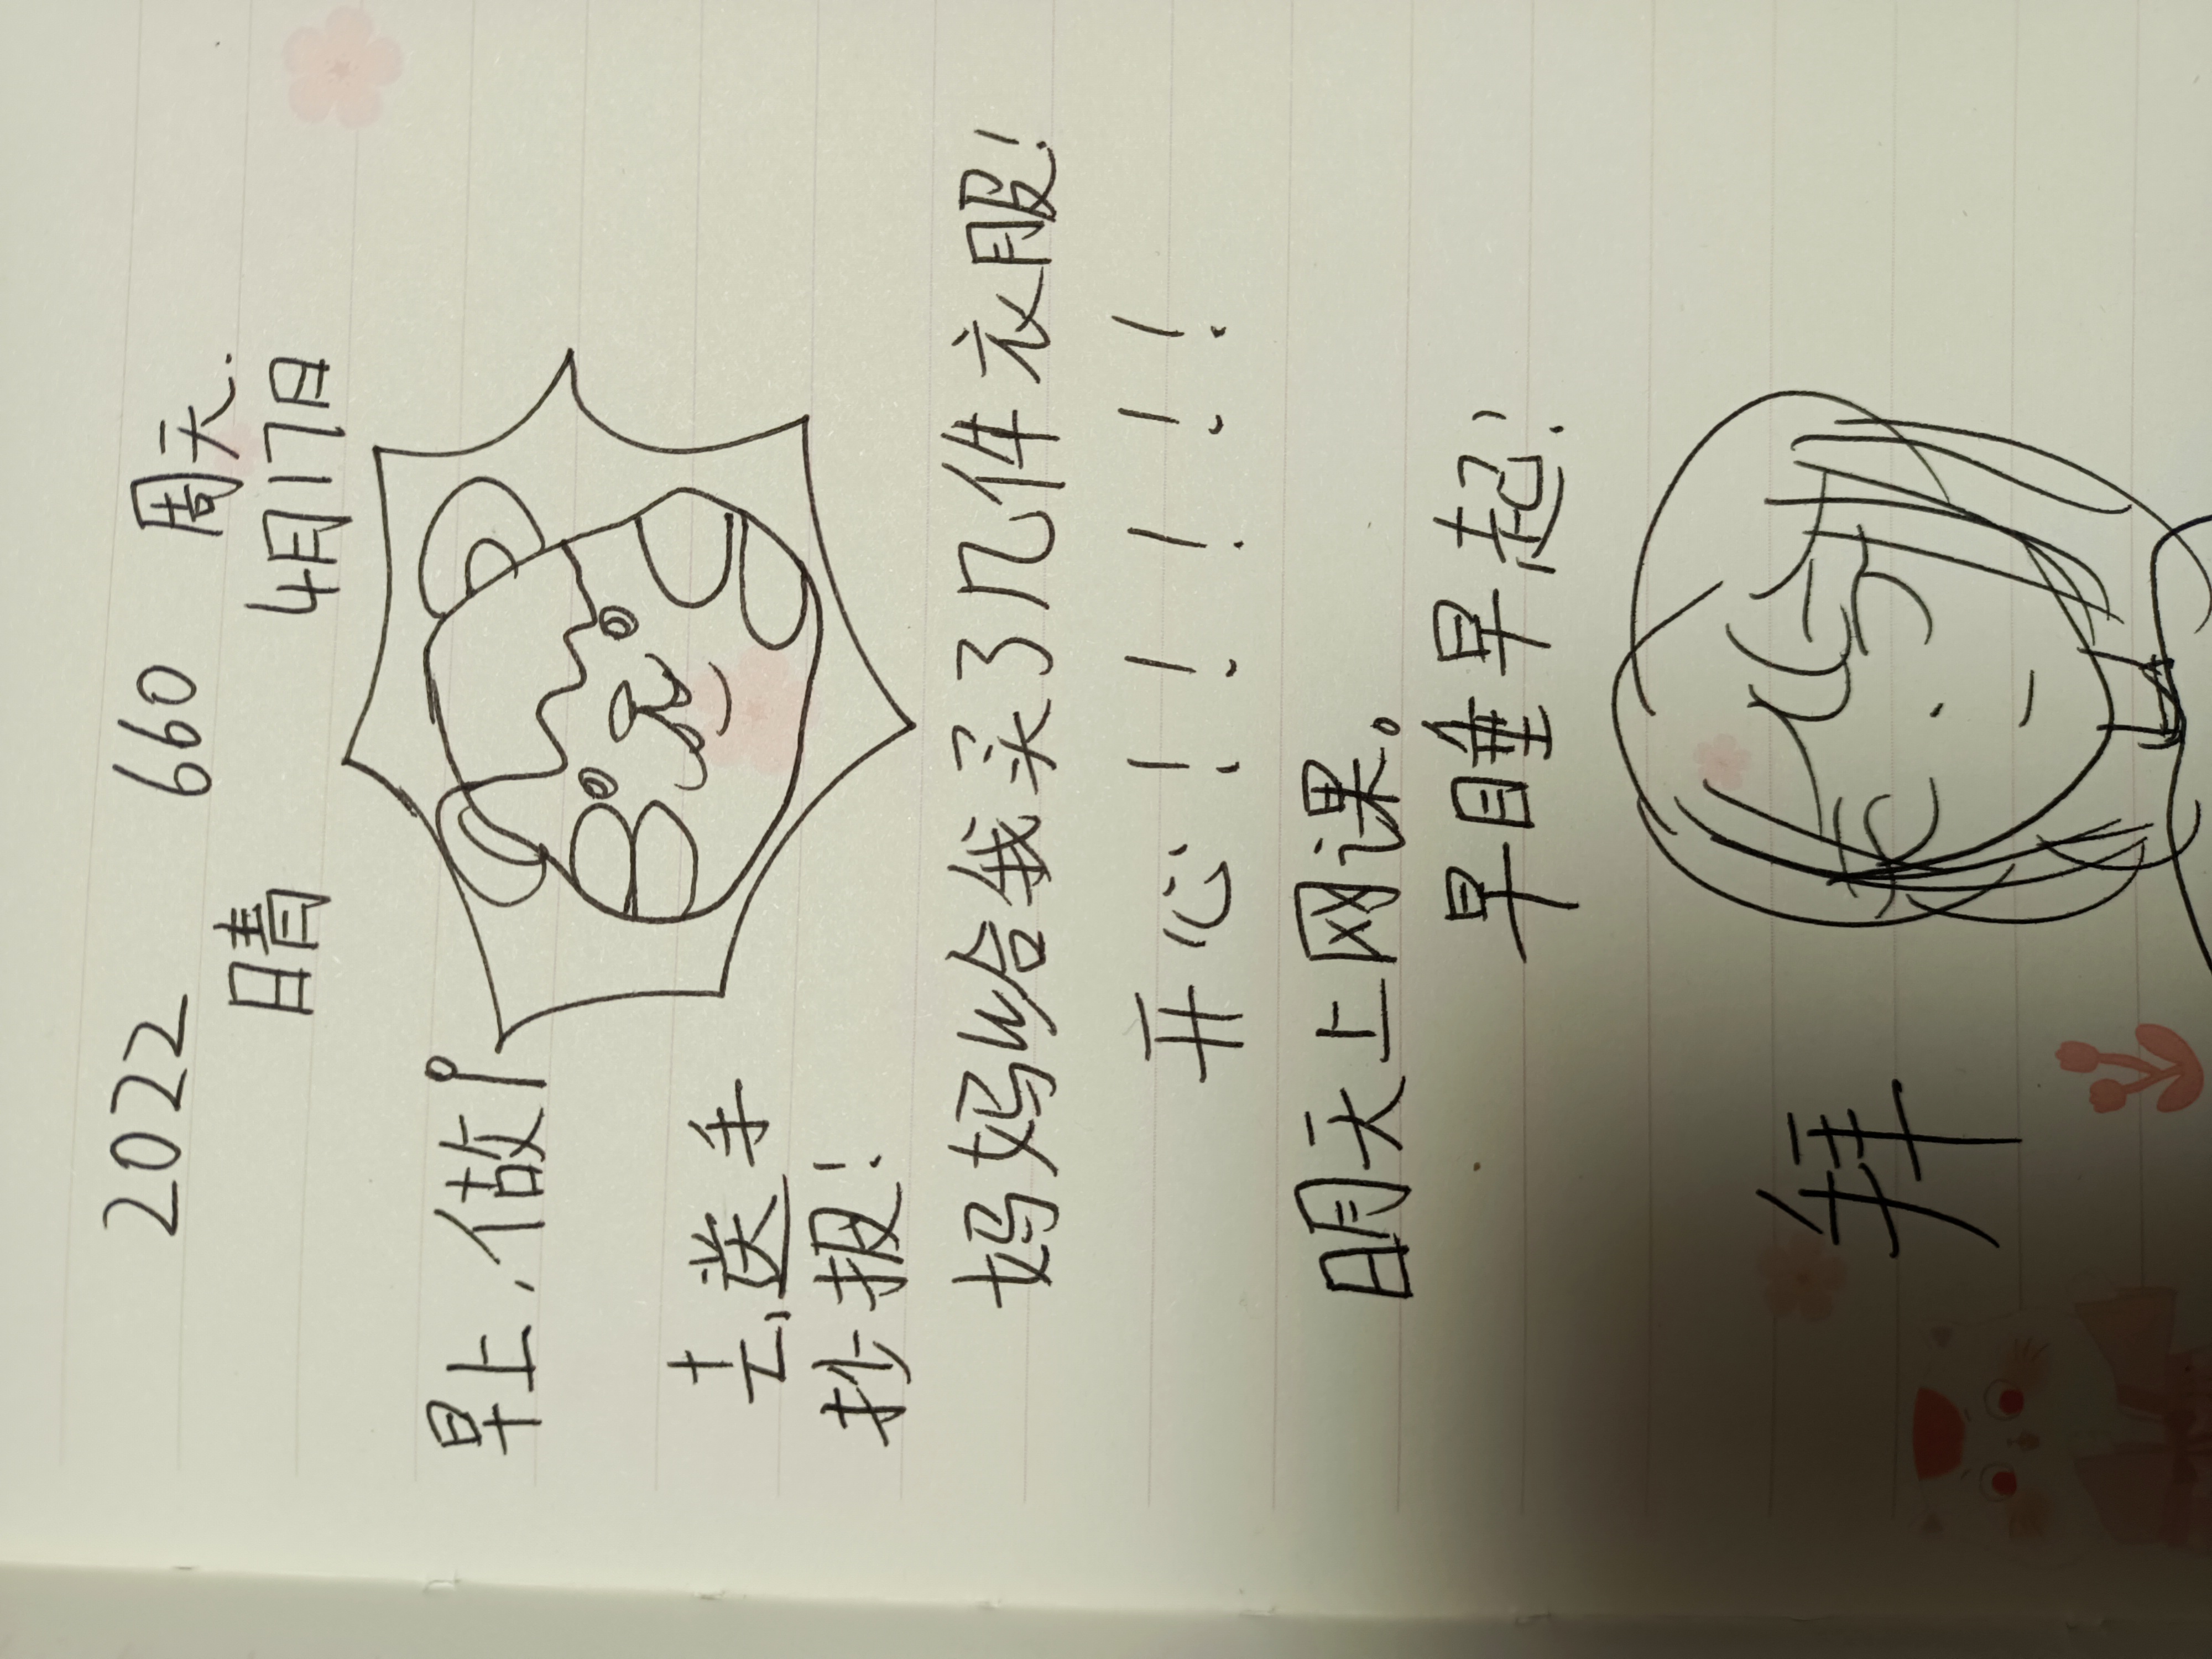 2022 660 周天.
晴 4月17日
早上,做
去送手
抄报!
妈妈给我买了几件衣服!
开心!!!!!
明天上网课。
早睡早起!
拜